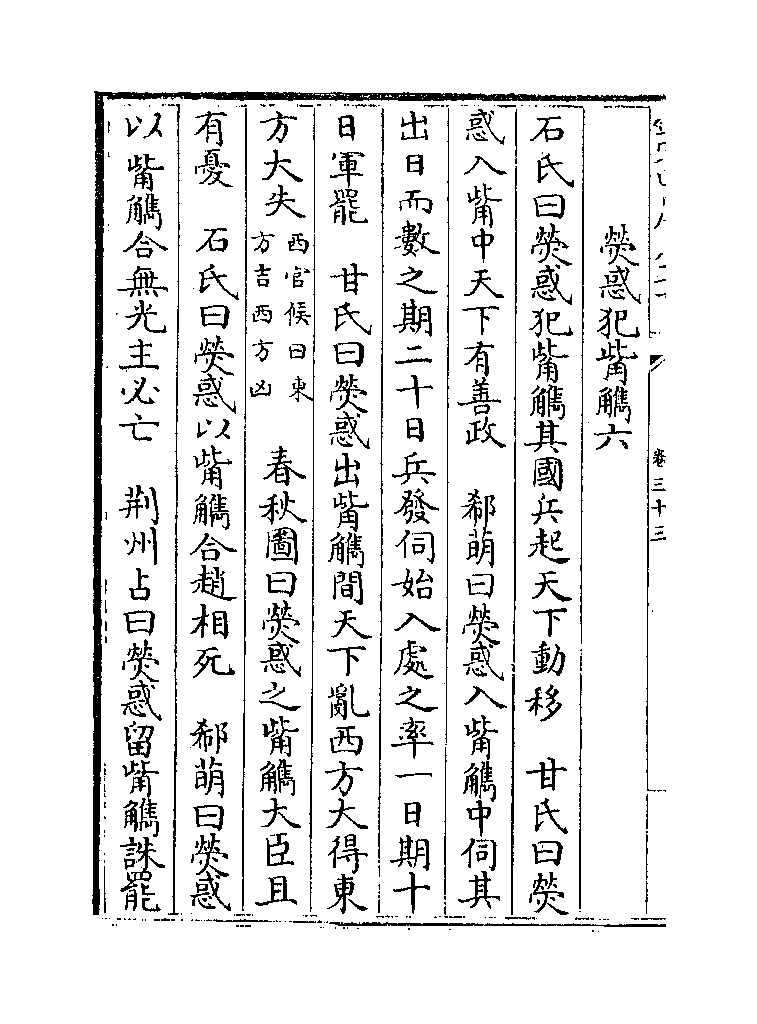 卷三十三
熒惑犯觜觿六
石氏曰熒惑犯觜觿其國兵起天下動移　甘氏曰熒
惑入觜中天下有善政　郗萌曰熒惑入觜觿中伺其
出日而數之期二十日兵發伺始入處之率一日期十
日軍罷　甘氏曰熒惑出觜觿間天下亂西方大得東
方大失西官候曰東方吉西方凶　春秋圖曰熒惑之觜觿大臣且
有憂　石氏曰熒惑以觜觿合趙相死　郗萌曰熒惑
以觜觿合無光主必亡　荆州占曰熒惑留觜觿誅罷